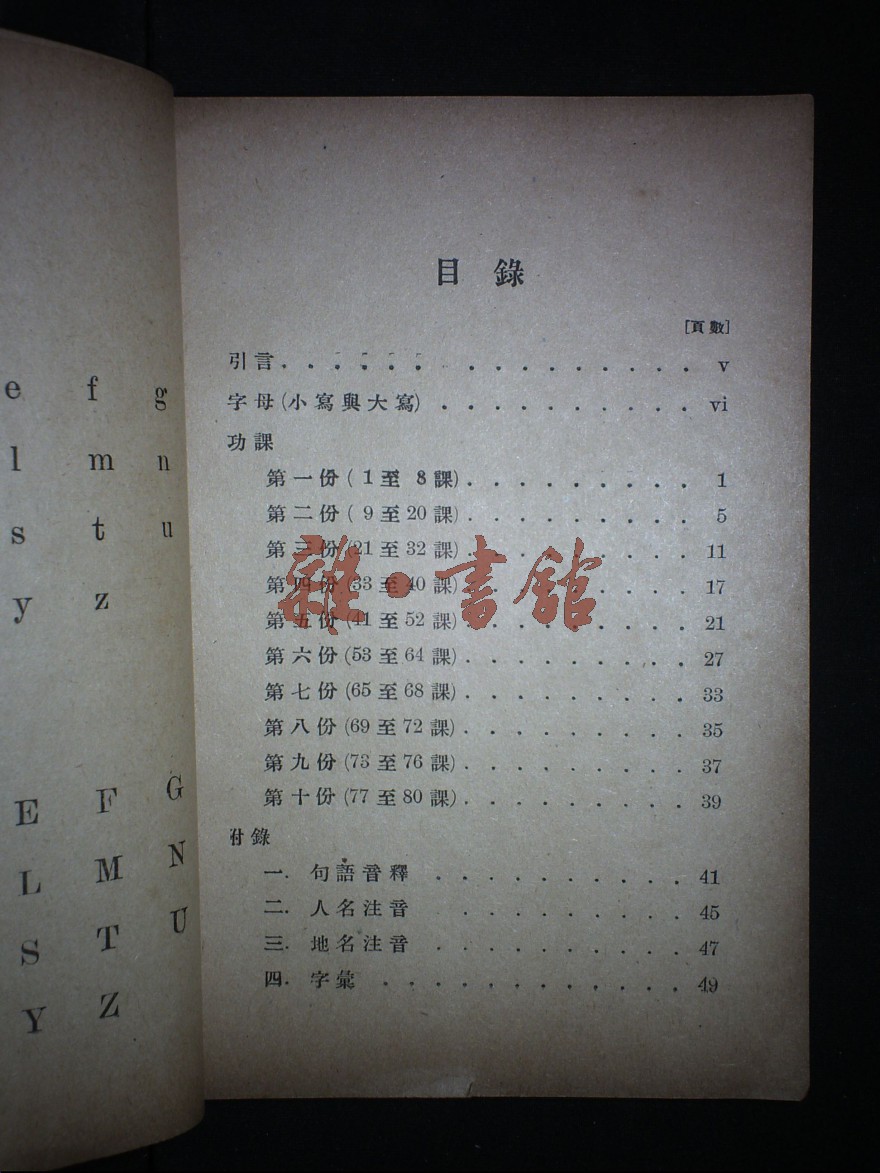 e f g
l m n
s t u
y z
E F G
L M N
S T U
Y Z
目錄
[頁數]
引言. . . . . . . . . . . . . . . . v
字母(小寫與大寫) . . . . . . . . . . vi
功課
第一份( 1至 8課). . . . . . . . . 1
第二份( 9至20課). . . . . . . . . 5
第三份(21至32課). . . . . . . . . 11
第四份(33至40課). . . . . . . . . 17
第五份(41至52課). . . . . . . . . 21
第六份(53至64課). . . . . . . . . 27
第七份(65至68課). . . . . . . . . 33
第八份(69至72課). . . . . . . . . 35
第九份(73至76課). . . . . . . . . 37
第十份(77至80課). . . . . . . . . 39
附錄
一. 句語音釋 . . . . . . . . . . 41
二. 人名注音 . . . . . . . . . . 45
三. 地名注音 . . . . . . . . . . 47
四. 字彙 . . . . . . . . . . . . 49
雜·書館